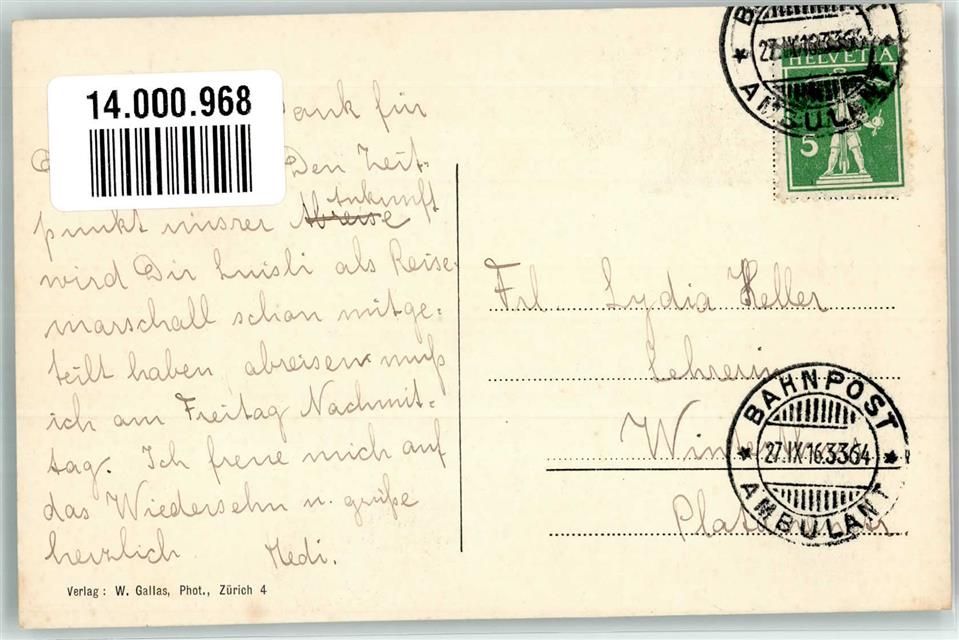 14.000.968
Dank für
Den Zeit-
punkt unsrer Abreise Ankunft
wird Dir Luisli als Reise-
marschall schon mitge-
teilt haben, abreisen muß
ich am Freitag Nachmit-
tag. Ich freue mich auf
das Wiedersehn u. grüße
herzlich Hedi.
Verlag: W. Gallas, Phot., Zürich 4
AMBULANT
HELVETIA
5
Frl. Lydia Keller
Lehrerin
BAHNPOST
27.IX.16.3364
AMBULANT